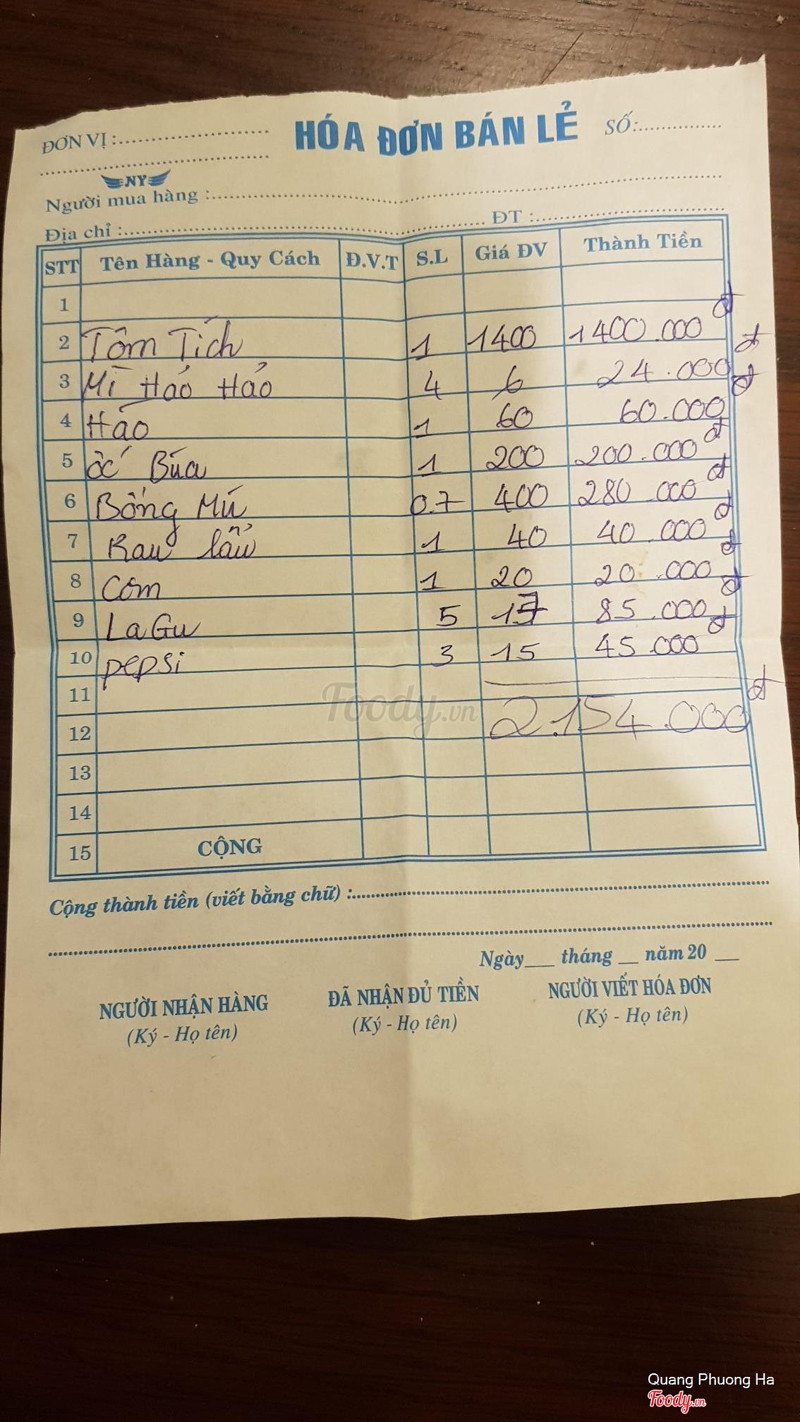 ĐƠN VỊ :
HÓA ĐƠN BÁN LẺ
SỐ:
NY
Người mua hàng :
Địa chỉ : ĐT :
STT Tên Hàng - Quy Cách Đ.V.T S.L Giá ĐV Thành Tiền
1
2 Tôm Tích 1 1400 1400.000đ
3 Mì Hảo Hảo 4 6 24.000đ
4 Hào 1 60 60.000đ
5 ốc Búa 1 200 200.000đ
6 Bống Mú 0.7 400 280.000đ
7 Rau lẩu 1 40 40.000đ
8 Cơm 1 20 20.000đ
9 LaGu 5 17 85.000đ
10 pepsi 3 15 45.000đ
11
12 2.154.000đ
13
14
15 CỘNG
Foody.vn
Cộng thành tiền (viết bằng chữ) :
Ngày___ tháng __ năm 20 __
NGƯỜI NHẬN HÀNG ĐÃ NHẬN ĐỦ TIỀN NGƯỜI VIẾT HÓA ĐƠN
(Ký - Họ tên) (Ký - Họ tên) (Ký - Họ tên)
Quang Phuong Ha
Foody.vn